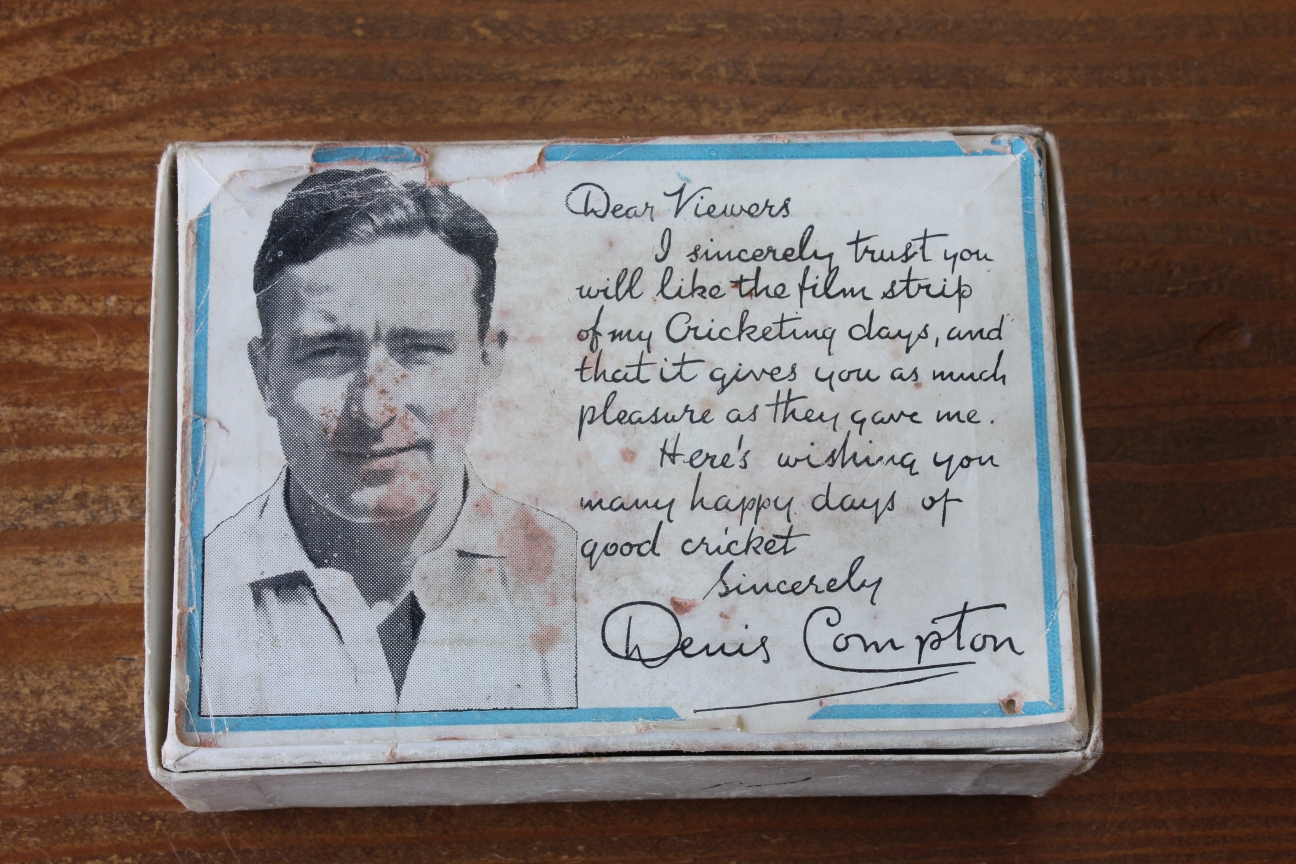 Dear Viewers
I sincerely trust you
will like the film strip
of my Cricketing days, and
that it gives you as much
pleasure as they gave me.
Here's wishing you
many happy days of
good cricket
Sincerely
Denis Compton